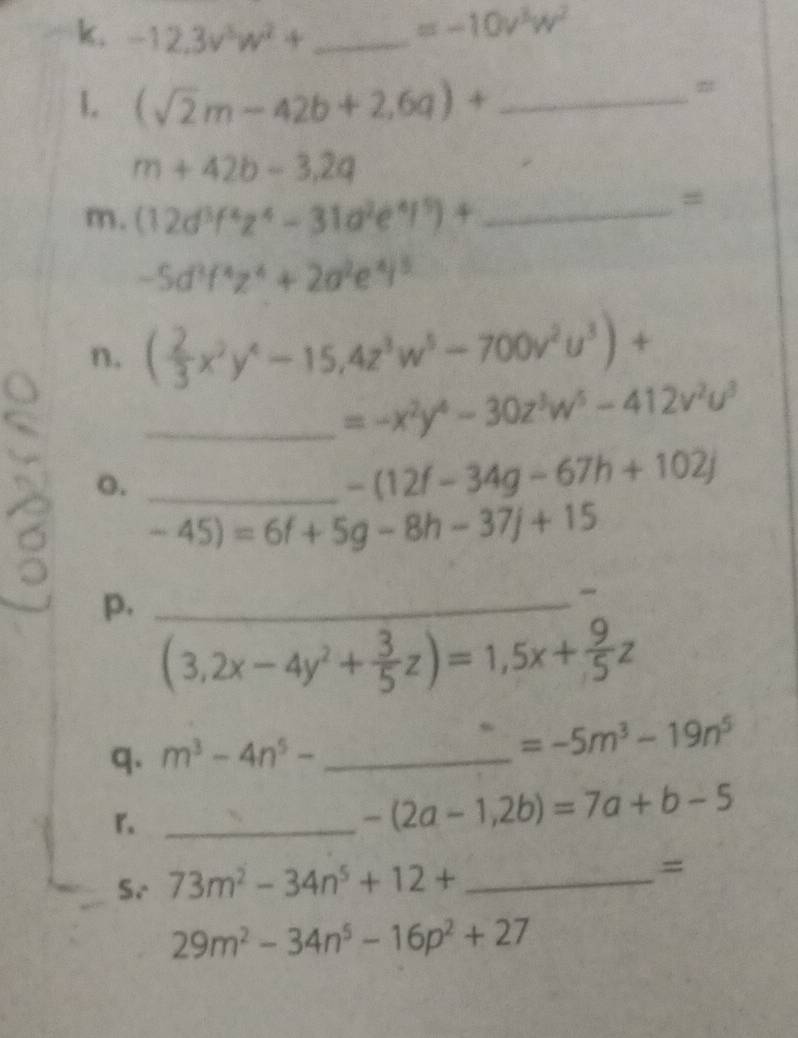 k. -12,3v⁵w² + ______ = -10v⁵w²
l. (√2m - 42b + 2,6q) + ______ =
m + 42b - 3,2q
m. (12d³f⁴z⁴ - 31a²e⁴j⁵) + ______ =
-5d³f⁴z⁴ + 2a²e⁴j⁵
n. (2/3 x²y⁴ - 15,4z³w⁵ - 700v²u³) +
______ = -x²y⁴ - 30z³w⁵ - 412v²u³
o. ______ - (12f - 34g - 67h + 102j
- 45) = 6f + 5g - 8h - 37j + 15
p. ______ -
(3,2x - 4y² + 3/5 z) = 1,5x + 9/5 z
q. m³ - 4n⁵ - ______ = -5m³ - 19n⁵
r. ______ - (2a - 1,2b) = 7a + b - 5
s. 73m² - 34n⁵ + 12 + ______ =
29m² - 34n⁵ - 16p² + 27